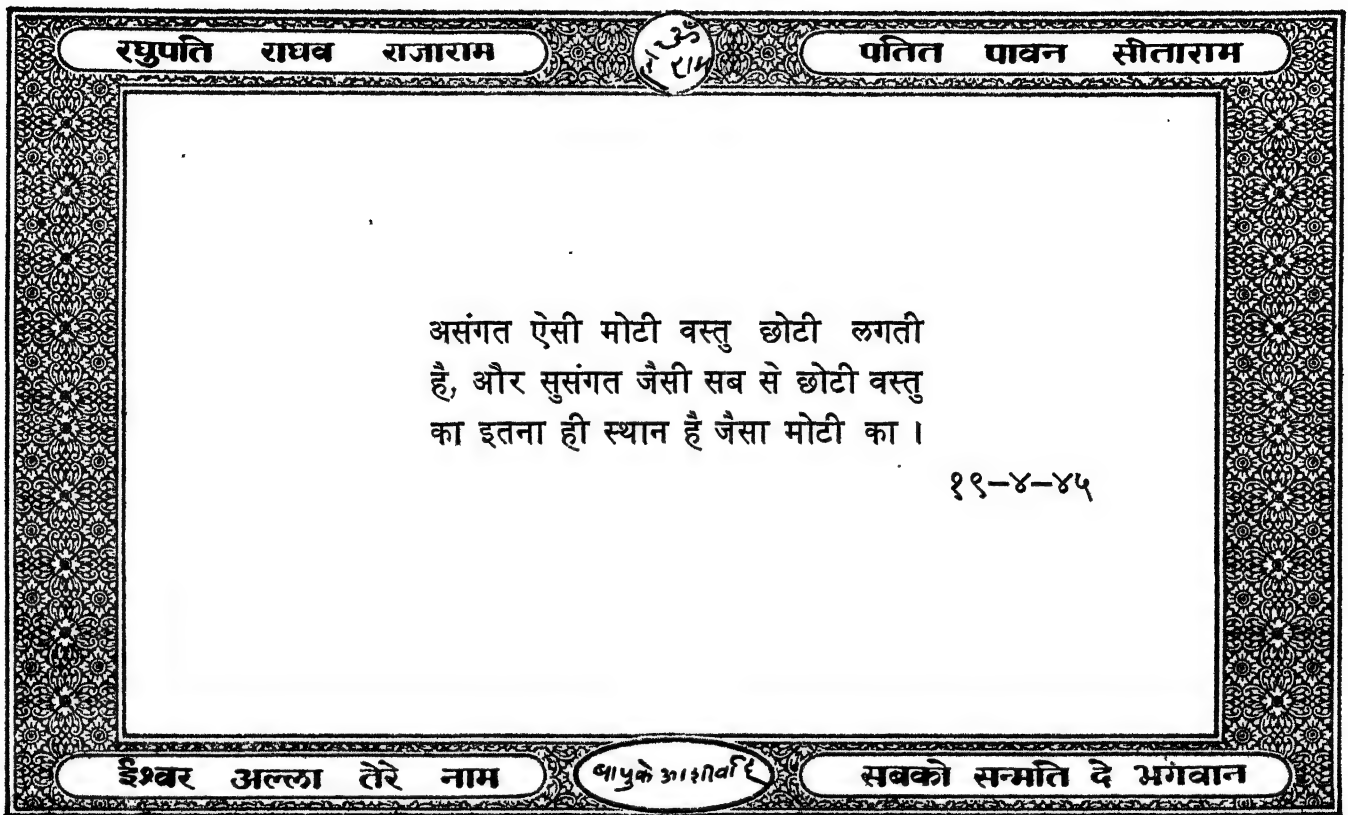 रघुपति राघव राजाराम
ॐ
राम
पतित पावन सीताराम
असंगत ऐसी मोटी वस्तु छोटी लगती
है, और सुसंगत जैसी सब से छोटी वस्तु
का इतना ही स्थान है जैसा मोटी का ।
१९-४-४५
ईश्वर अल्ला तेरे नाम
बापुके आशीर्वाद
सबको सन्मति दे भगवान